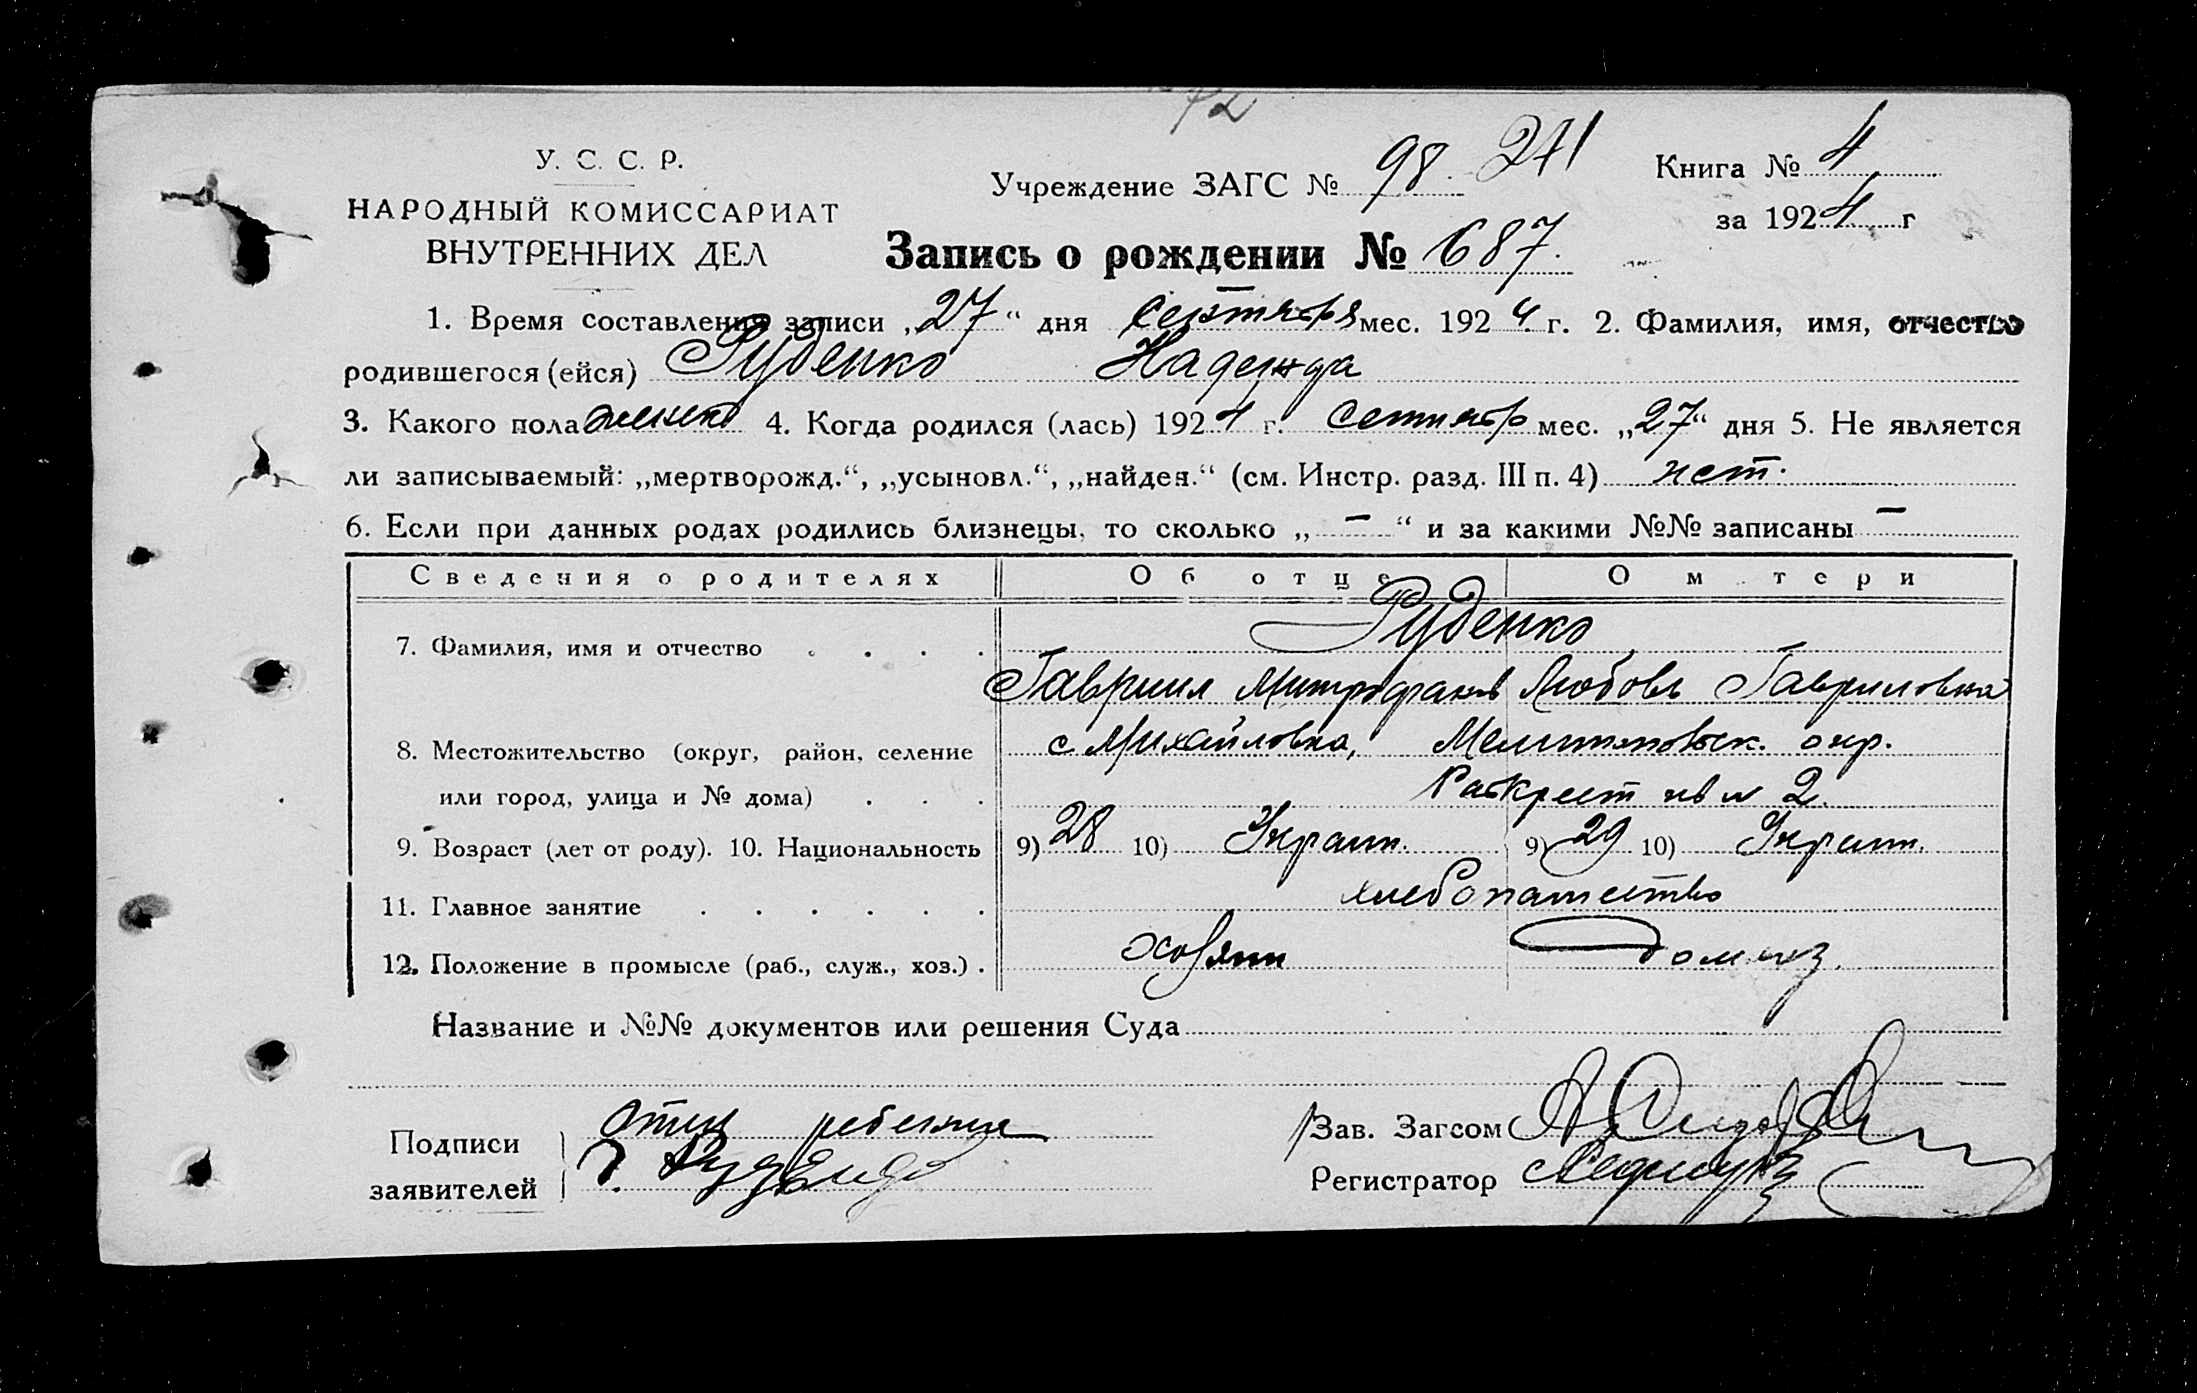 72
У. С. С. Р.
НАРОДНЫЙ КОМИССАРИАТ
ВНУТРЕННИХ ДЕЛ
Учреждение ЗАГС № 98 241
Книга № 4
за 1924 г
Запись о рождении № 687.
1. Время составления записи „27“ дня сентября мес. 1924 г. 2. Фамилия, имя, отчество
родившегося (ейся) Руденко Надежда
3. Какого пола женско 4. Когда родился (лась) 1924 г. сентябр мес. „27“ дня 5. Не является
ли записываемый: „мертворожд.“, „усыновл.“, „найден.“ (см. Инстр. разд. III п. 4) нет.
6. Если при данных родах родились близнецы, то сколько „ — “ и за какими №№ записаны —
Сведения о родителях Об отце О м тери
7. Фамилия, имя и отчество . . . . Руденко
Гавриил Митрофанов Любовь Гавриловна
8. Местожительство (округ, район, селение с Михайловка, Мелитопольск. окр.
или город, улица и № дома) . . . 2.
9. Возраст (лет от роду). 10. Национальность 9) 28 10) Украин. 9) 29 10) Украин.
11. Главное занятие . . . . . . хлебопашество
12. Положение в промысле (раб., служ., хоз.) . хозяин домхоз.
Название и №№ документов или решения Суда
Подписи
заявителей
отец ребенка
Г. Руденко
Зав. Загсом
Регистратор